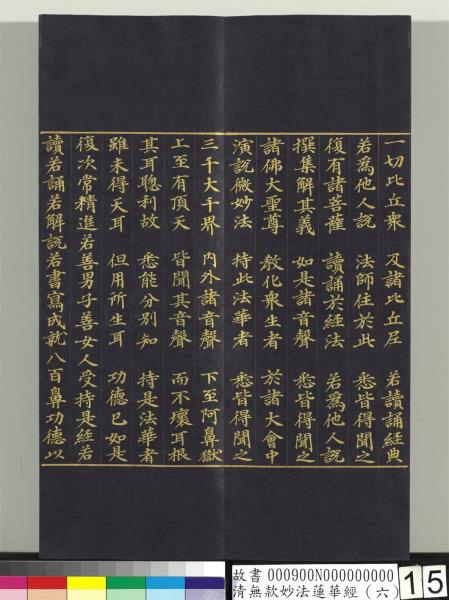 一切比丘衆　及諸比丘尼　若讀誦經典
若爲他人說　法師住於此　悉皆得聞之
復有諸菩薩　讀誦於經法　若爲他人說
撰集解其義　如是諸音聲　悉皆得聞之
諸佛大聖尊　教化衆生者　於諸大會中
演說微妙法　持此法華者　悉皆得聞之
三千大千界　內外諸音聲　下至阿鼻獄
上至有頂天　皆聞其音聲　而不壞耳根
其耳聰利故　悉能分別知　持是法華者
雖未得天耳　但用所生耳　功德已如是
復次常精進若善男子善女人受持是經若
讀若誦若解說若書寫成就八百鼻功德以
故書 000900N000000000
清無款妙法蓮華經（六）
15